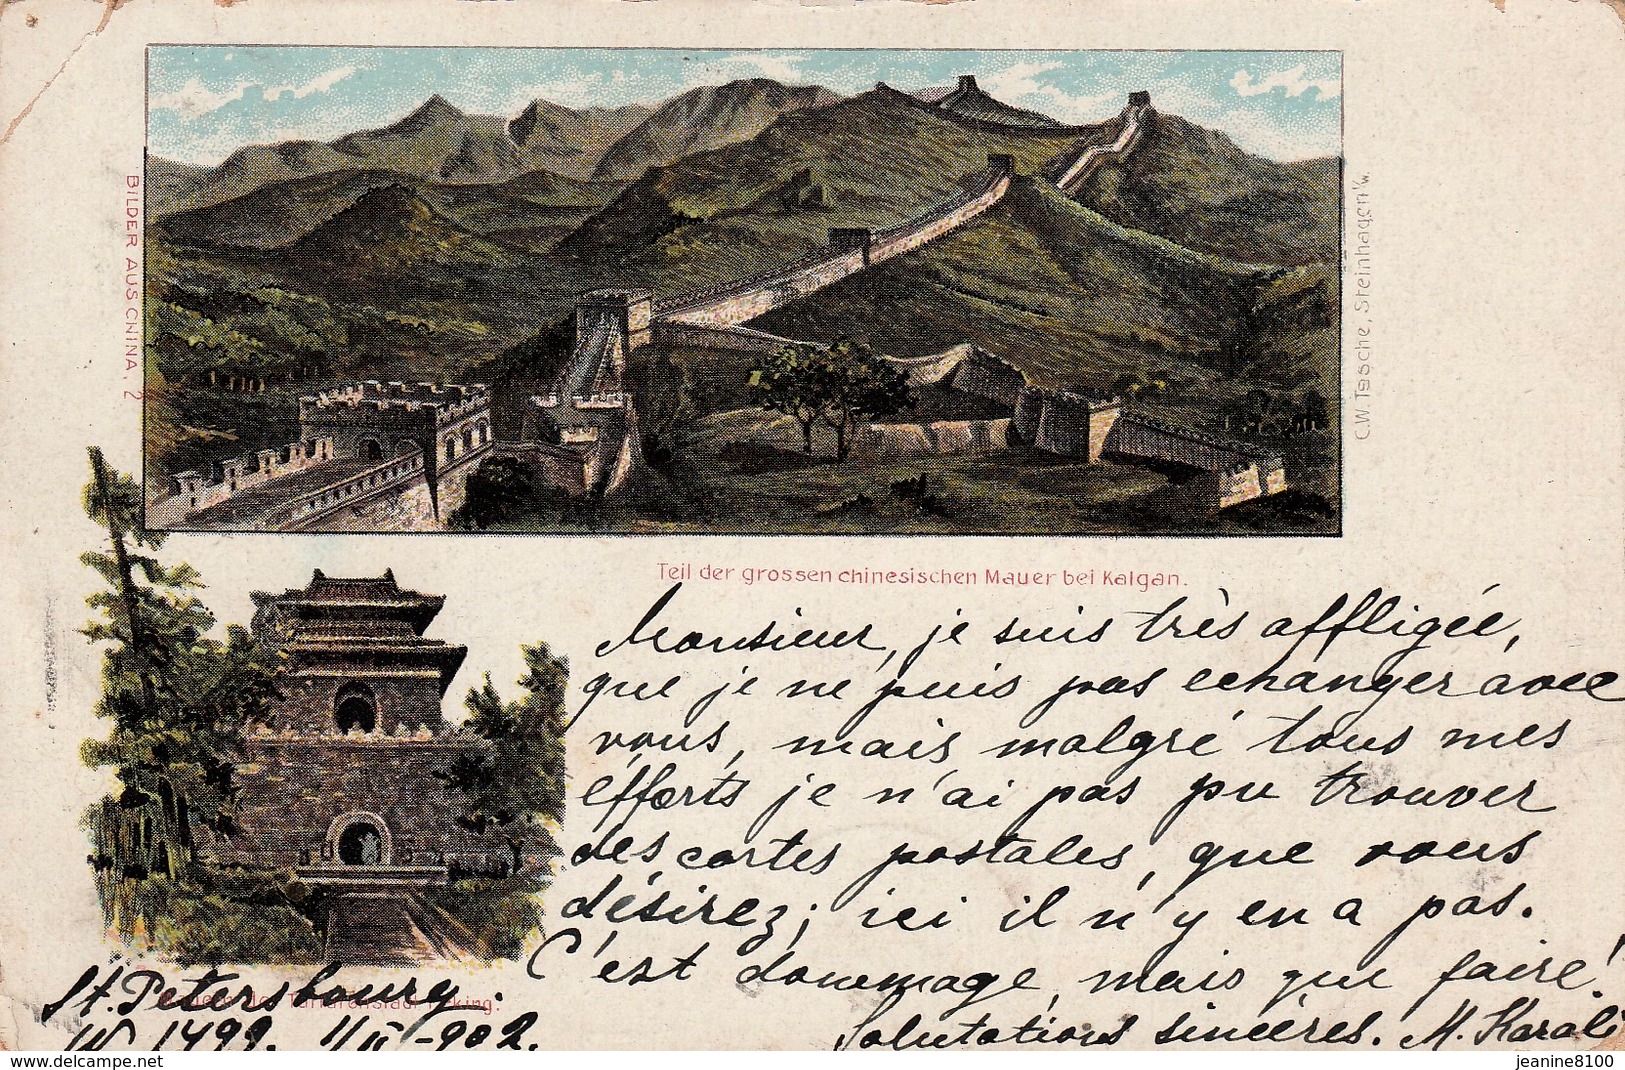 BILDER AUS CHINA, 2
C.W. Tasche, Steinhagen i/w.
Teil der grossen chinesischen Mauer bei Kalgan.
Monsieur, je suis très affligée,
que je ne puis pas echanger avec
vous, mais malgré tous mes
éfforts je n'ai pas pu trouver
des cartes postales, que vous
désirez; ici il n'y en a pas.
C'est dommage, mais que faire!
Salutations sincères. M. Karali
St. Petersbourg.
N 1499. 1/II -902.
der Tartarenstadt Peking.
delcampe.net
jeanine8100